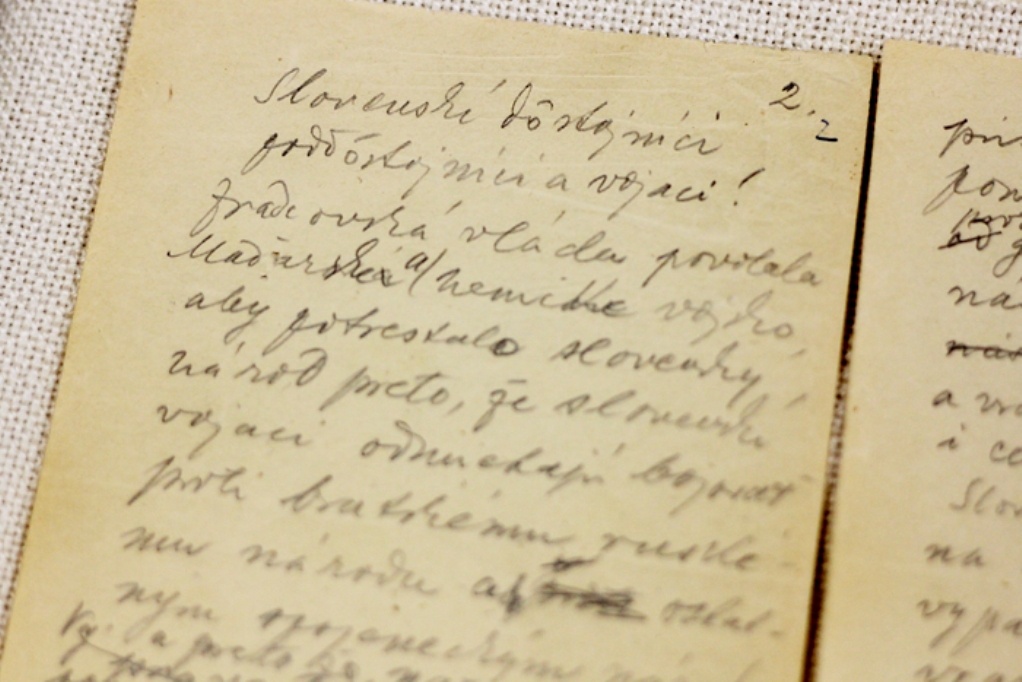 2.
2
Slovenskí dôstojníci
poddôstojníci a vojaci!
Zradcovská vláda povolala
Maďarské a nemické vojsko,
aby potrestalo slovenský
národ preto, že slovenskí
vojaci odmietajú bojovať
proti bratskému ruské-
mu národu a ostat-
ným spojeneckým
a preto
prí
pom
ná
a vra
i ce
Slov
na
vypa